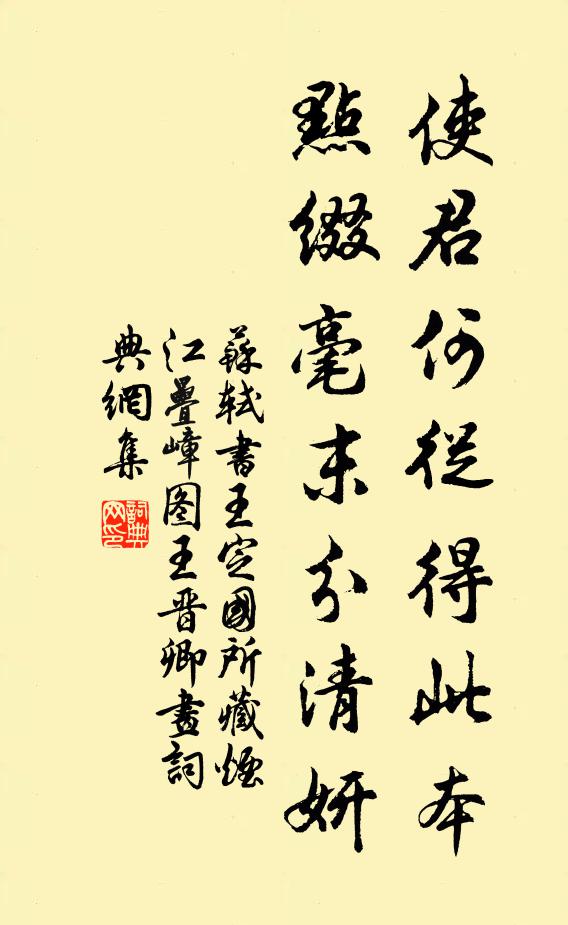 使君何從得此本
點綴毫末分清妍
蘇軾書王定國所藏煙
江疊嶂图王晉卿畫詞
典網集
詞典
网印